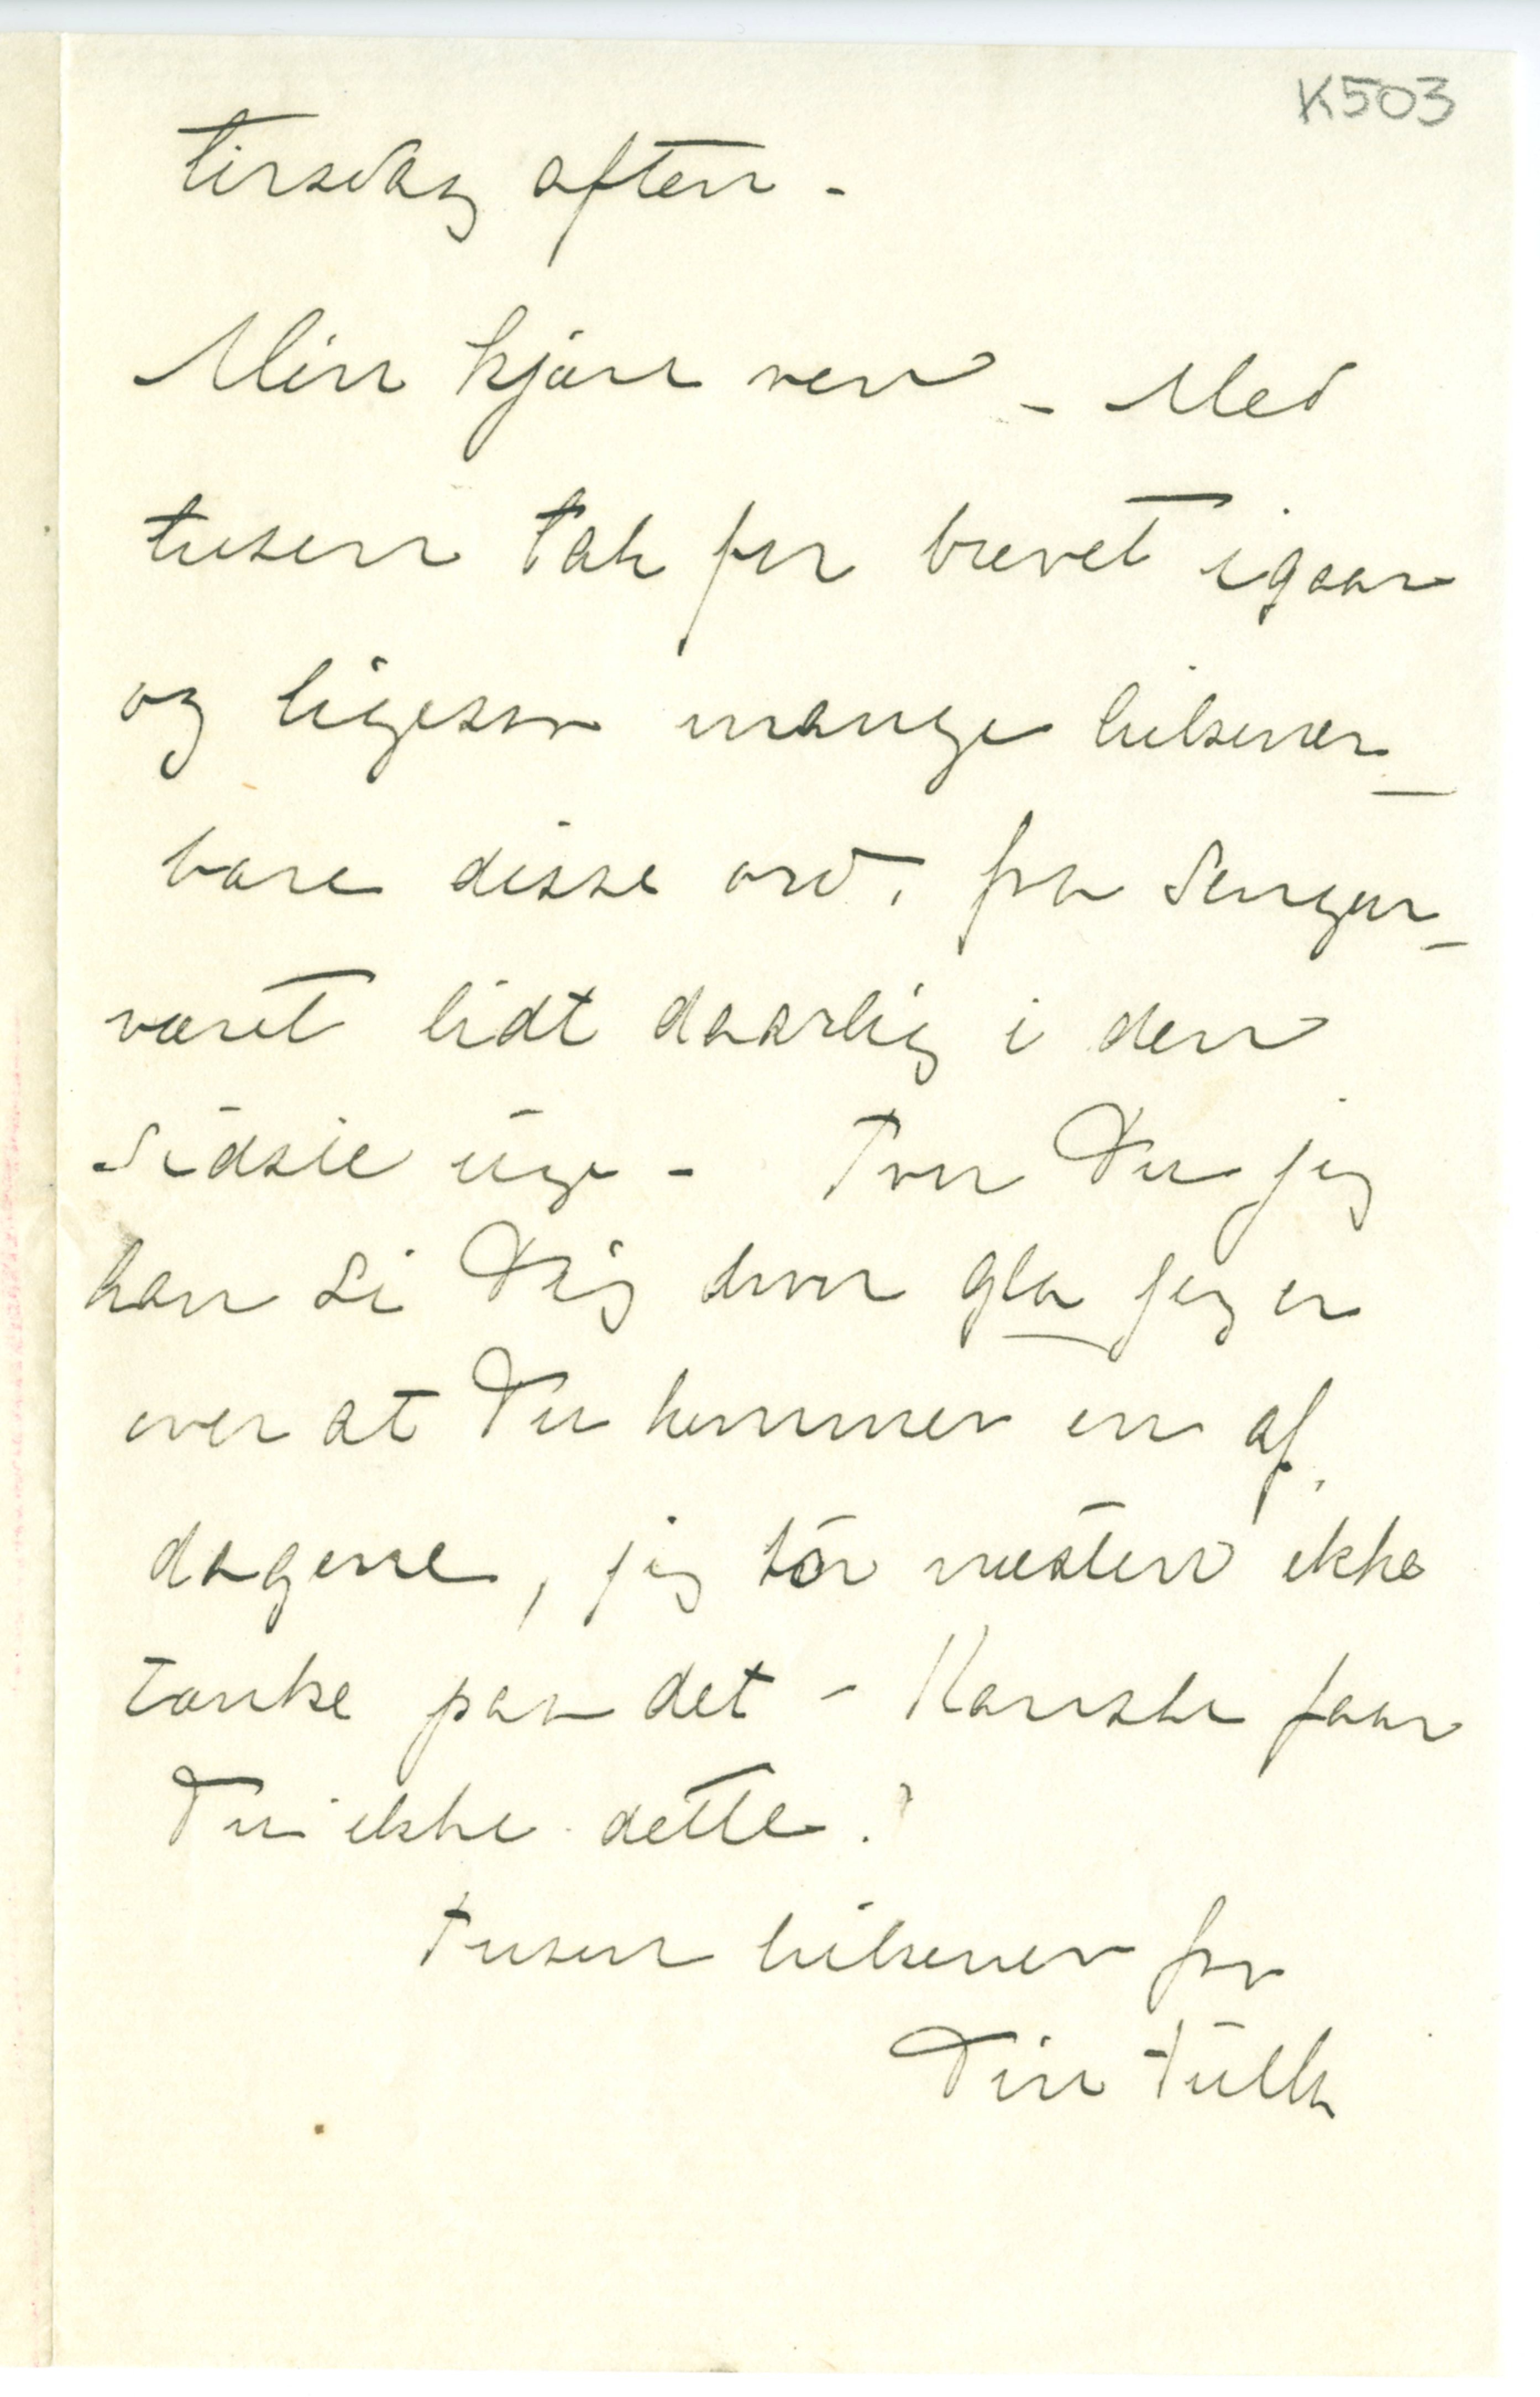 K503
Tirsdag aften -
Min kjære ven - Med
tusen tak for brevet igaar
og ligesaa mange hilsener_
bare disse ord, fra sengen_
været lidt daarlig i den
sidste uge - Tror Du jeg
kan si Dig hvor gla jeg er
over at Du kommer en af
dagene, jeg tör næsten ikke
tænke paa det - Kanske faar
Du ikke dette.
Tusen hilsener fra
Din Tulla